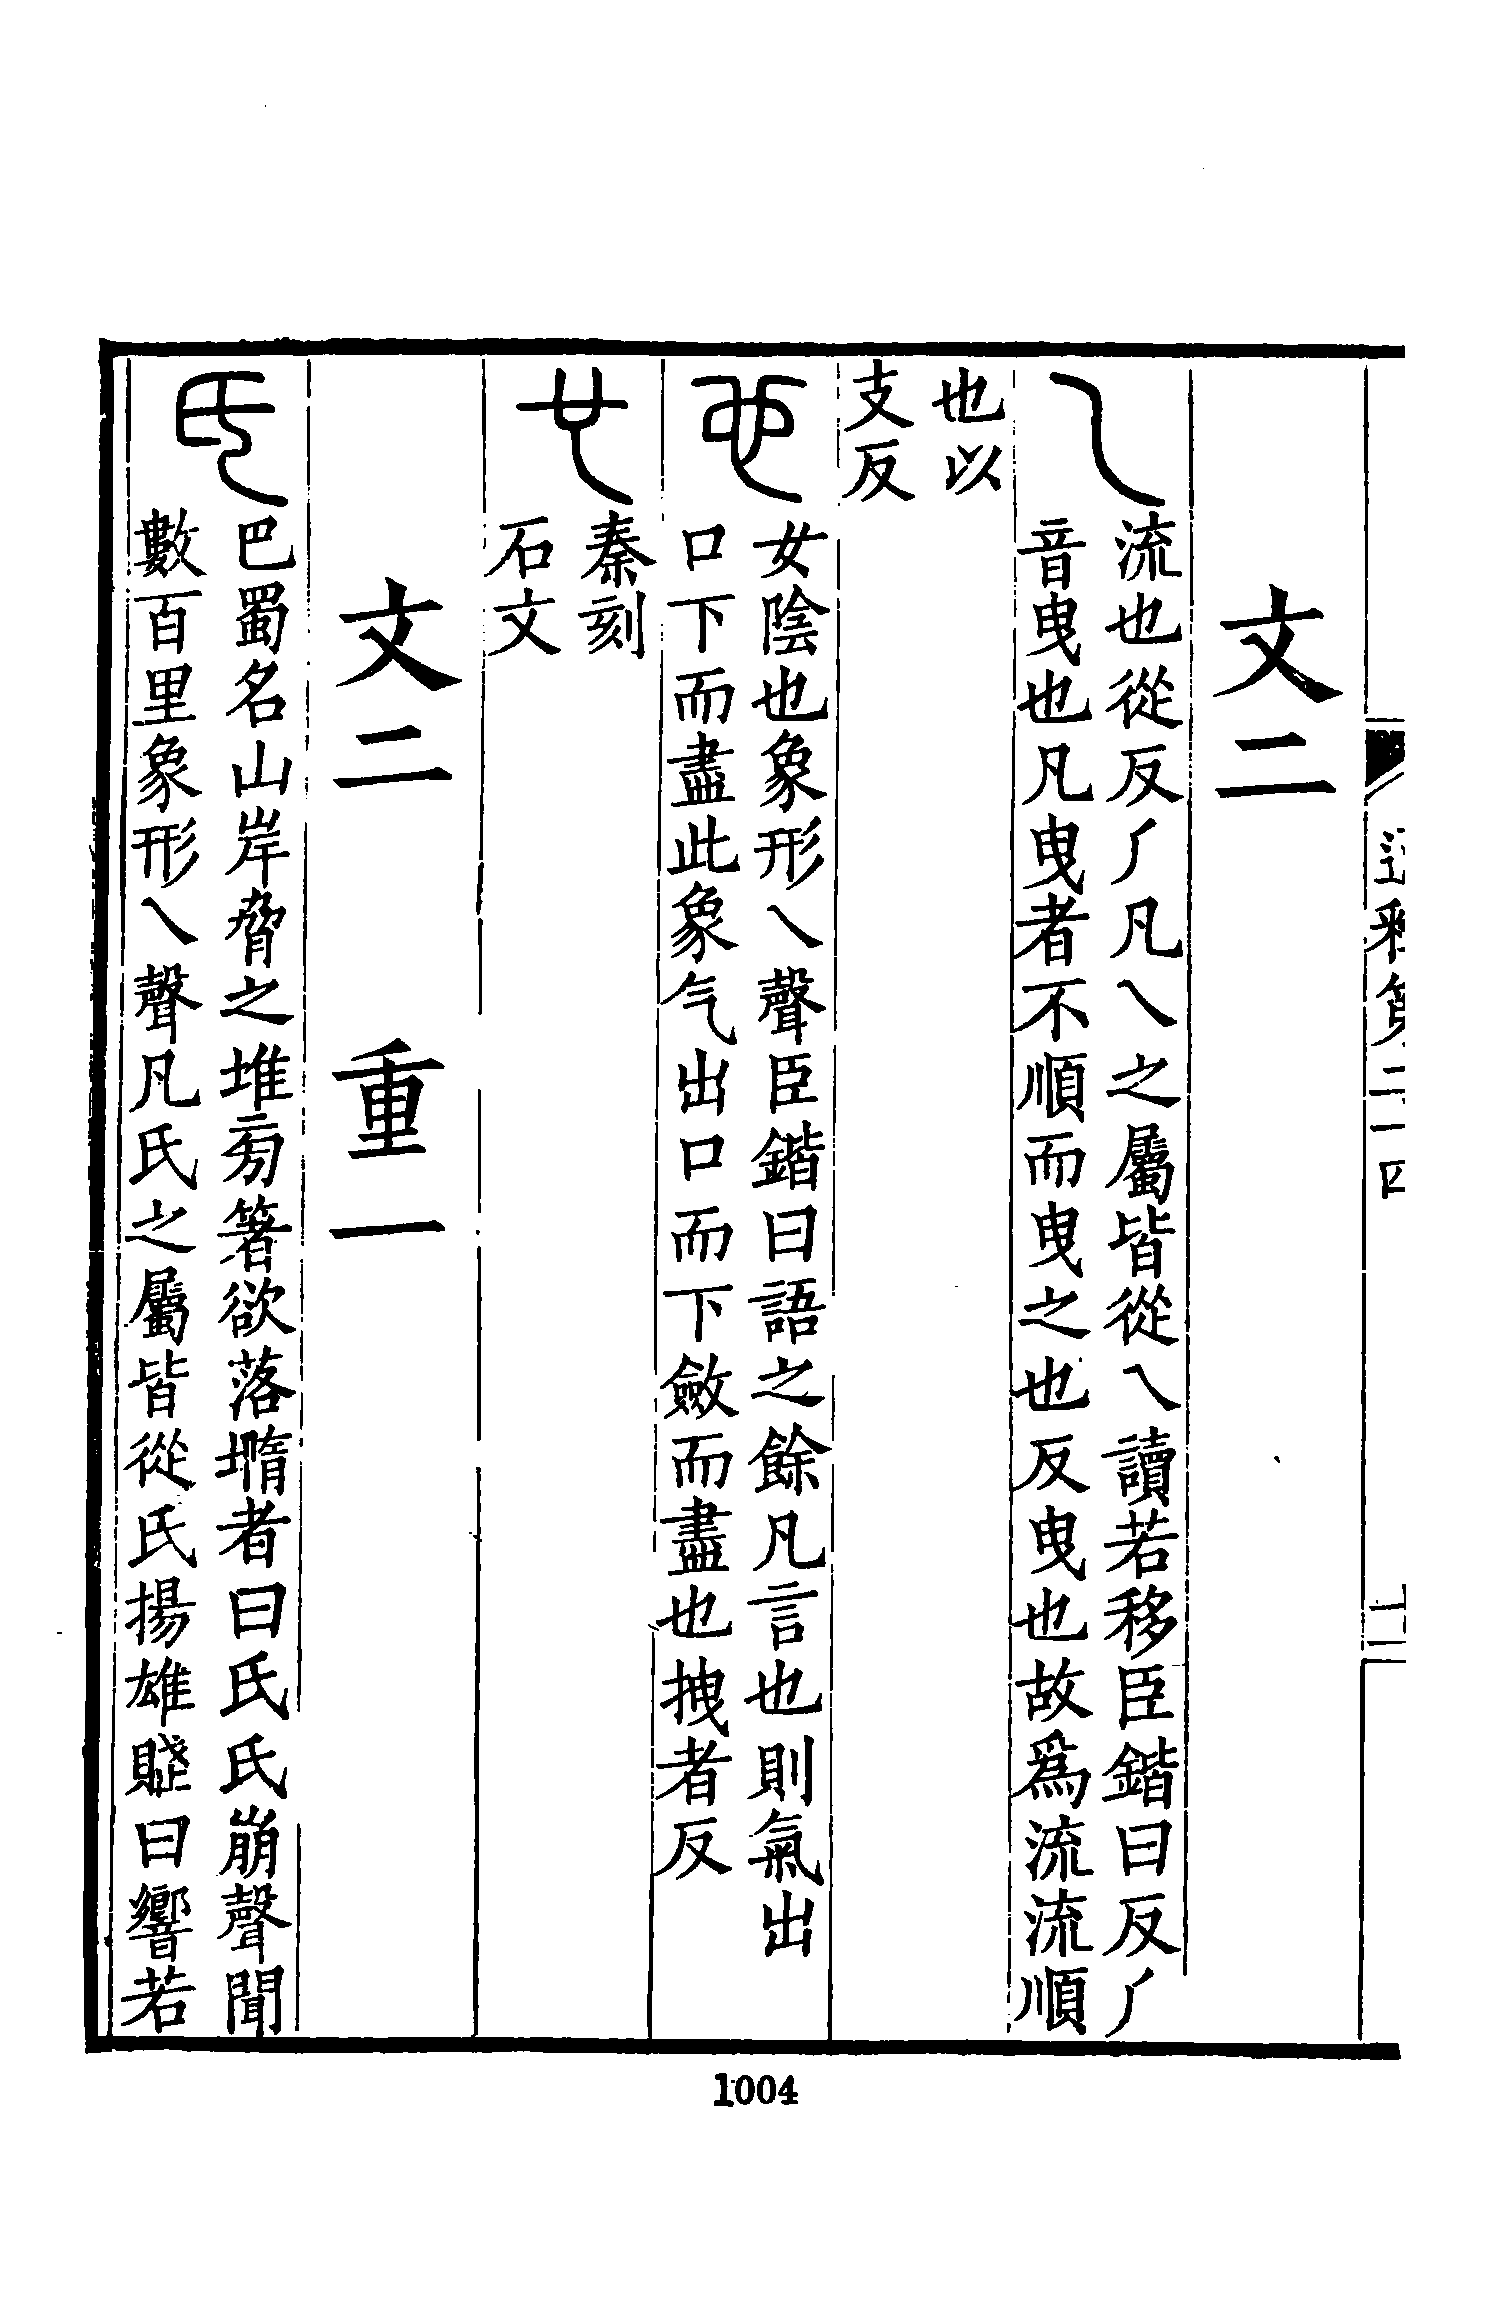 通釋第二十四
文二
乁
流也從反丿凡乁之屬皆從乁讀若移臣鍇曰反丿
音曳也凡曳者不順而曳之也反曳也故爲流流順
也以
支反
也
女陰也象形乁聲臣鍇曰語之餘凡言也則氣出
口下而盡此象气出口而下斂而盡也拽者反
秦刻
石文
文二　重一
氏
巴蜀名山岸脅之堆旁箸欲落墮者曰氏氏崩聲聞
數百里象形乁聲凡氏之屬皆從氏揚雄賦曰響若
1004